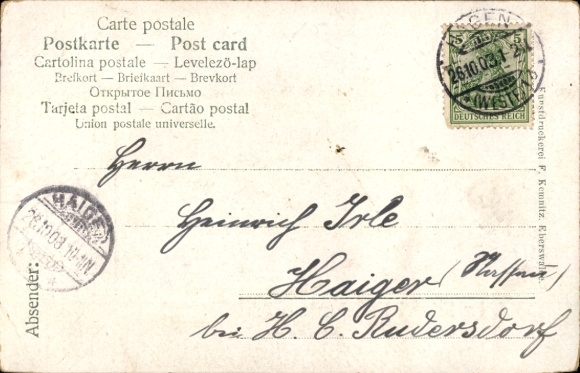 Carte postale
Postkarte — Post card
Cartolina postale — Levelező-lap
Brefkort — Briefkaart — Brevkort
Открытое Письмо
Tarjeta postal — Cartão postal
Union postale universelle.
HAGEN
26.10.03.1
(WESTF)
5 5
DEUTSCHES REICH
Herrn
Heinrich Irle
Haiger (Nassau)
bei H. C. Rudersdorf
HAIGER
26.10.03
Absender:
Kunstdruckerei F. Kemnitz, Eberswalde.